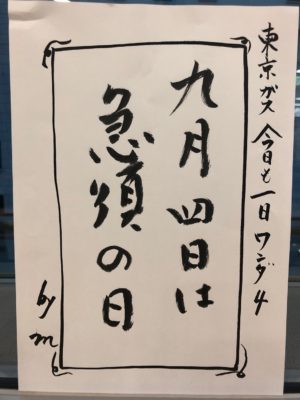 東京ガス 今日も一日ワンダ4
九月四日は
急須の日
by m